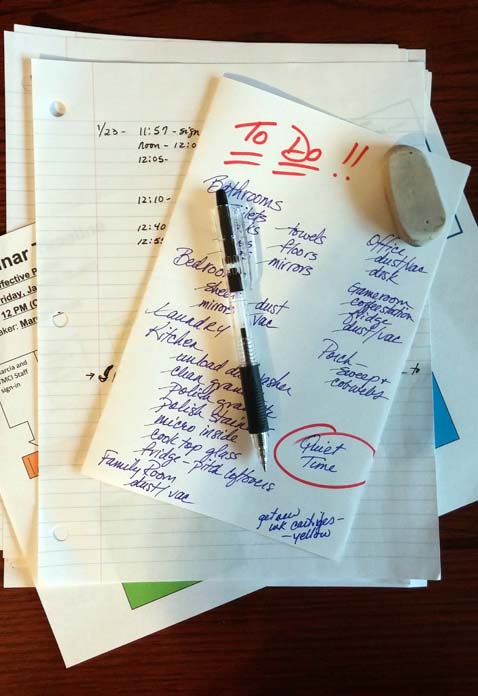 1/23 - 11:57 - sign
noon - 12:0
12:05 -
12:10 -
12:40
12:5
nar
ffective P
riday, Ja
12 PM (C
aker: Mar
arcia and
MCI Staff
sign-in
To Do !!
Bathrooms
towels
floors
mirrors
Bedroo
mirrors
dust
vac
Laundry
Kitchen
unload d sher
clean gran
polish gran
polish stain
micro inside
cook top glass
fridge - pitch leftovers
Family Room
dust/vac
Office
dust/vac
desk
Gameroom
fridge
dust/vac
Porch
sweep +
cobwebs
Quiet
Time
get new
ink cartriges -
- yellow